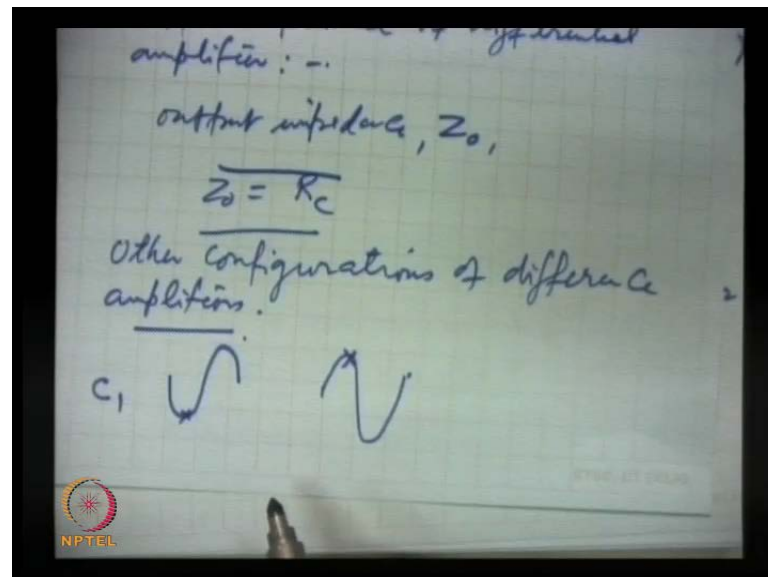 of differential
amplifier: -.
output impedance, Z₀,
Z₀ = R_C
Other configurations of difference
amplifiers.
C₁
NPTEL